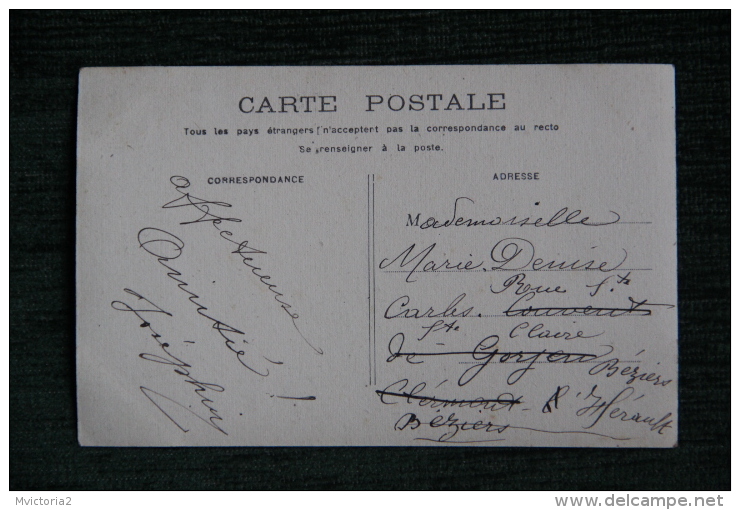 CARTE POSTALE
Tous les pays étrangers n'acceptent pas la correspondance au recto
Se renseigner à la poste.
CORRESPONDANCE
affectueuse
Amitié!
ADRESSE
Mademoiselle
Marie Denise
Rue Ste
Carles. Couvent
Ste Claire
de Gorjan
Béziers
Clermont - l'Hérault
Béziers
Mvictoria2
www.delcampe.net